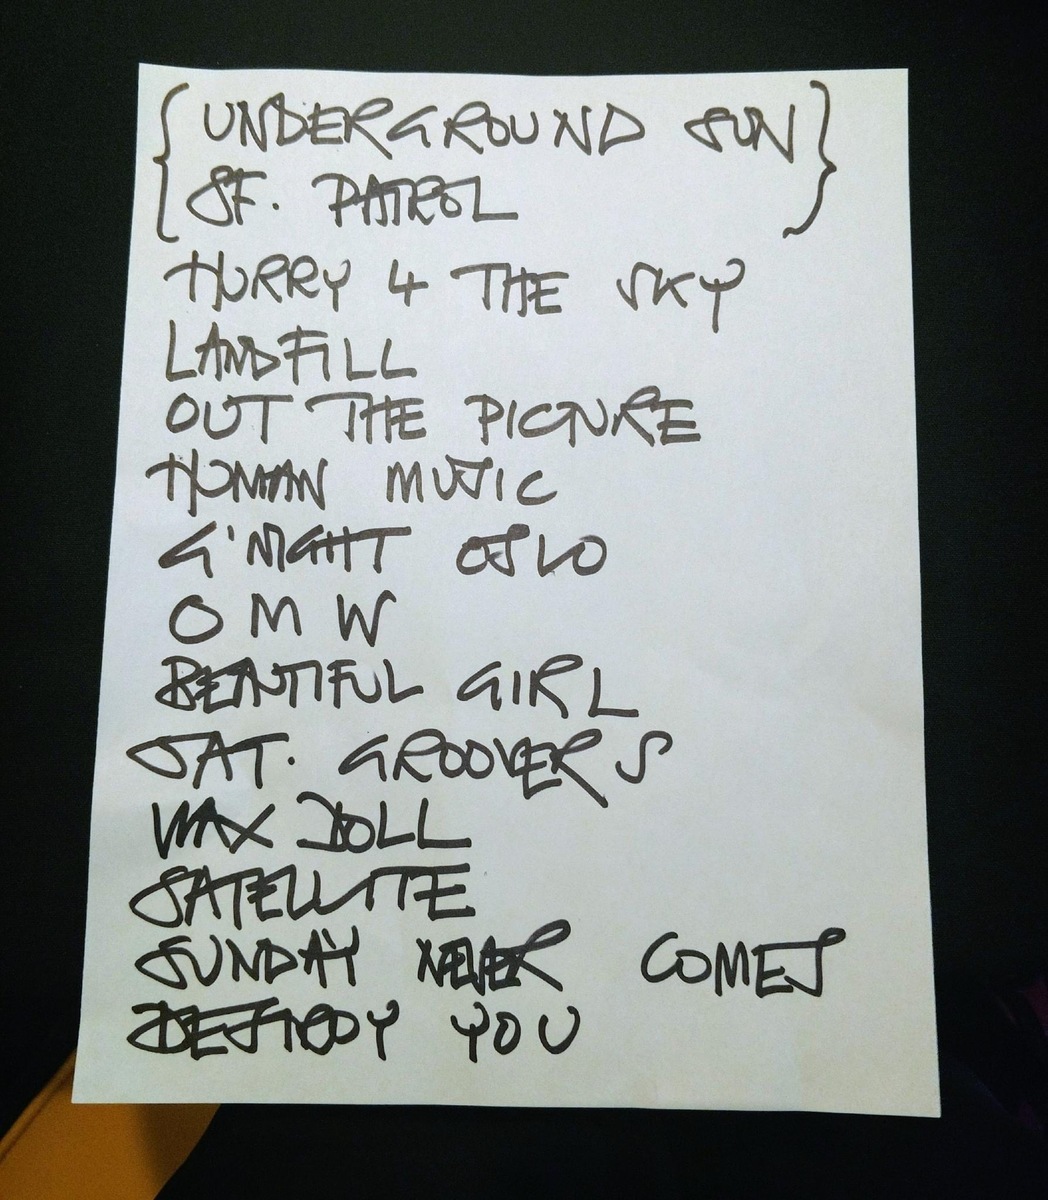 { UNDERGROUND SUN }
{ SF. PATROL }
HURRY 4 THE SKY
LANDFILL
OUT THE PICTURE
HUMAN MUSIC
G'NIGHT OSLO
O M W
BEAUTIFUL GIRL
SAT. GROOVERS
WAX DOLL
SATELLITE
SUNDAY NEVER COMES
DESTROY YOU